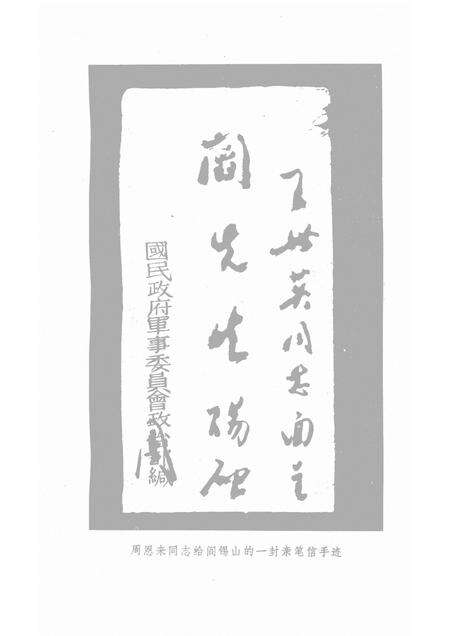 王世英同志面呈
閻先生
國民政府軍事委員會政治部緘
周
周恩来同志给阎锡山的一封亲笔信手迹